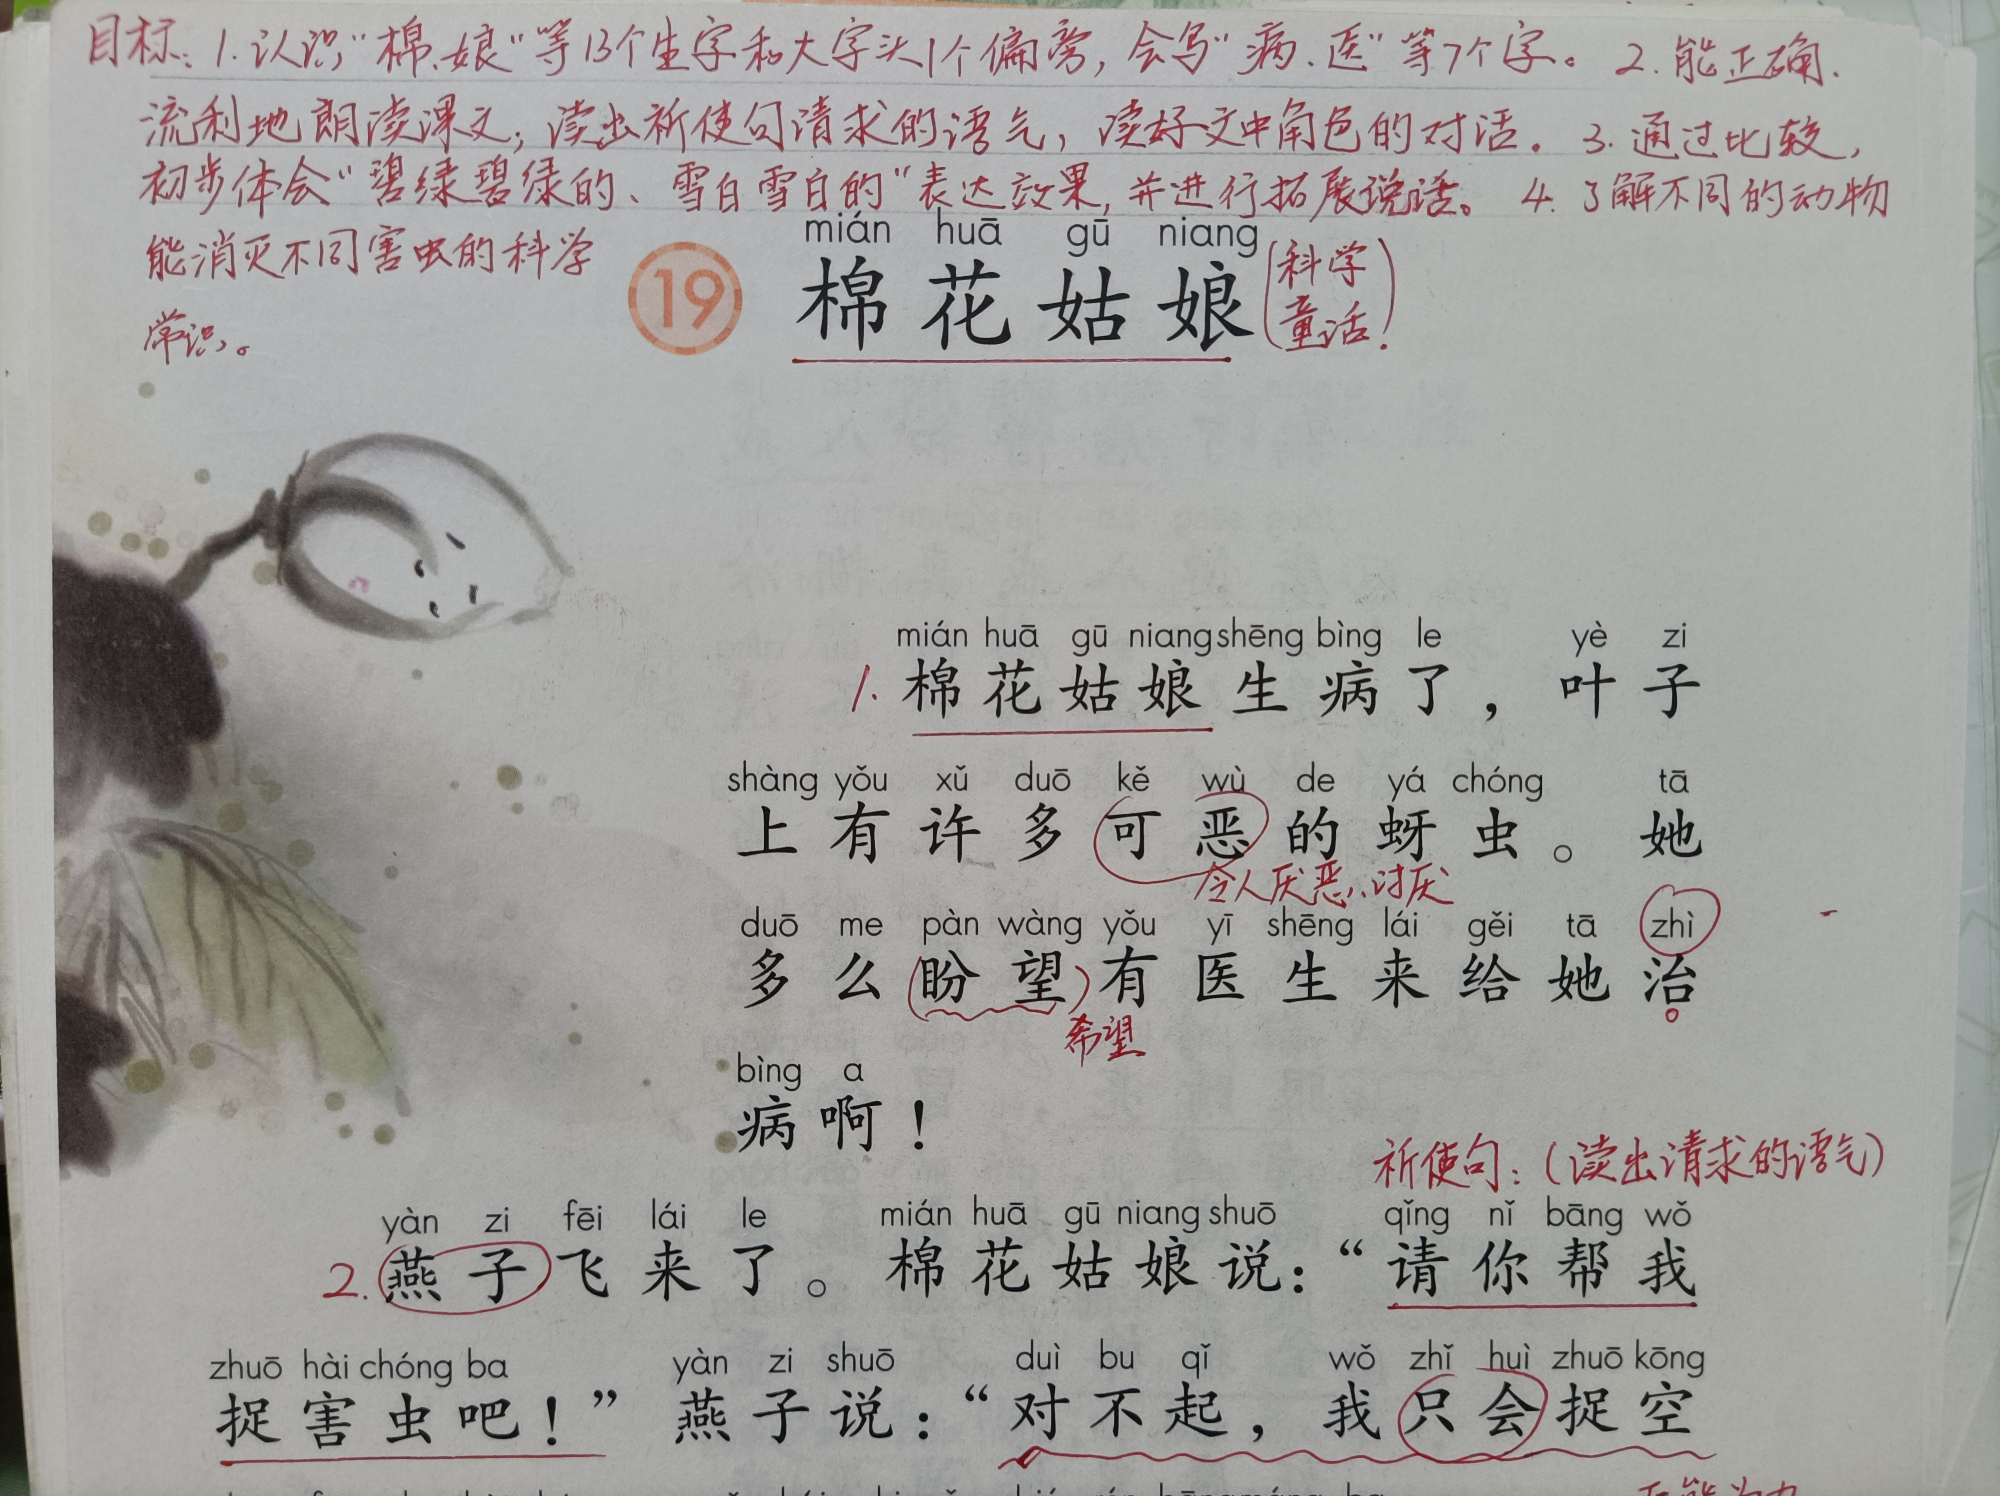 目标：1.认识“棉、娘”等13个生字和大字头1个偏旁，会写“病、医”等7个字。 2.能正确、
流利地朗读课文，读出祈使句请求的语气，读好文中角色的对话。 3.通过比较，
初步体会“碧绿碧绿的、雪白雪白的”表达效果，并进行拓展说话。 4.了解不同的动物
能消灭不同害虫的科学
常识。
mián huā gū niang
19 棉花姑娘（科学童话！）
mián huā gū niang shēng bìng le yè zi
1. 棉花姑娘生病了，叶子
shàng yǒu xǔ duō kě wù de yá chóng tā
上有许多可恶的蚜虫。她
令人厌恶、讨厌
duō me pàn wàng yǒu yī shēng lái gěi tā zhì
多么盼望有医生来给她治
希望
bìng a
病啊！
祈使句：（读出请求的语气）
yàn zi fēi lái le mián huā gū niang shuō qǐng nǐ bāng wǒ
2. 燕子飞来了。棉花姑娘说：“请你帮我
zhuō hài chóng ba yàn zi shuō duì bu qǐ wǒ zhǐ huì zhuō kōng
捉害虫吧！”燕子说：“对不起，我只会捉空